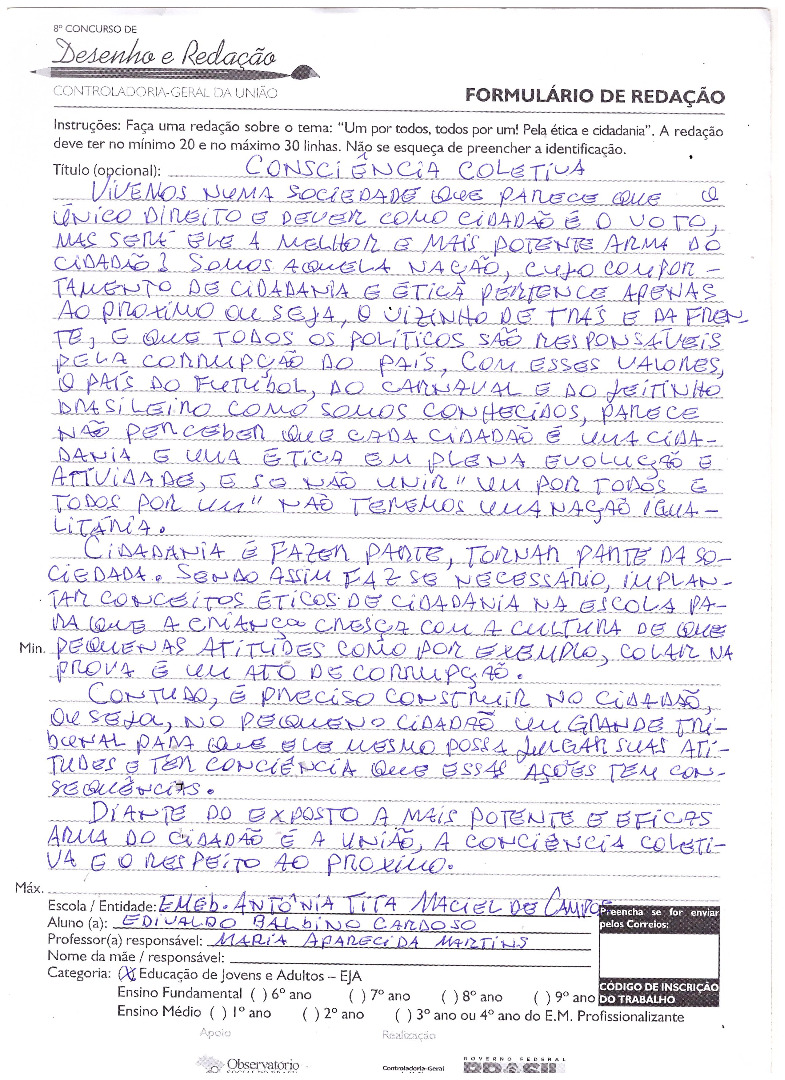 8º CONCURSO DE
Desenho e Redação
CONTROLADORIA-GERAL DA UNIÃO
FORMULÁRIO DE REDAÇÃO
Instruções: Faça uma redação sobre o tema: “Um por todos, todos por um! Pela ética e cidadania”. A redação
deve ter no mínimo 20 e no máximo 30 linhas. Não se esqueça de preencher a identificação.
Título (opcional): CONSCIÊNCIA COLETIVA
VIVEMOS NUMA SOCIEDADE QUE PARECE QUE O
ÚNICO DIREITO E DEVER COMO CIDADÃO É O VOTO,
MAS SERÁ ELE A MELHOR E MAIS POTENTE ARMA DO
CIDADÃO? SOMOS AQUELA NAÇÃO, CUJO COMPOR-
TAMENTO DE CIDADANIA E ÉTICA PERTENCE APENAS
AO PROXIMO OU SEJA, O VIZINHO DE TRÁS E DA FREN-
TE, E QUE TODOS OS POLÍTICOS SÃO RESPONSÁVEIS
PELA CORRUPÇÃO DO PAÍS, COM ESSES VALORES,
O PAÍS DO FUTEBOL, DO CARNAVAL E DO JEITINHO
BRASILEIRO COMO SOMOS CONHECIDOS, PARECE
NÃO PERCEBER QUE CADA CIDADÃO É UMA CIDA-
DANIA E UMA ÉTICA EM PLENA EVOLUÇÃO E
ATIVIDADE, E SE NÃO UNIR "UM POR TODOS E
TODOS POR UM" NÃO TEREMOS UMA NAÇÃO IGUA-
LITÁRIA.
CIDADANIA É FAZER PARTE, TORNAR PARTE DA SO-
CIEDADA. SENDO ASSIM FAZ SE NECESSÁRIO, IMPLAN-
TAR CONCEITOS ÉTICOS DE CIDADANIA NA ESCOLA PA-
RA QUE A CRIANÇA CRESÇA COM A CULTURA DE QUE
Min. PEQUENAS ATITUDES COMO POR EXEMPLO, COLAR NA
PROVA É UM ATO DE CORRUPÇÃO.
CONTUDO, É PRECISO CONSTRUIR NO CIDADÃO,
OU SEJA, NO PEQUENO CIDADÃO UM GRANDE TRI-
BUNAL PARA QUE ELE MESMO POSSA JULGAR SUAS ATI-
TUDES E TER CONCIÊNCIA QUE ESSAS AÇÕES TEM CON-
SEQUÊNCIAS.
DIANTE DO EXPOSTO A MAIS POTENTE E EFICAS
ARMA DO CIDADÃO É A UNIÃO, A CONCIÊNCIA COLETI-
VA E O RESPEITO AO PROXIMO.
Máx.
Escola / Entidade: EMEB. ANTÔNIA TITA MACIEL DE CAMPOS
Aluno (a): EDIVALDO BALBINO CARDOSO
Professor(a) responsável: MARIA APARECIDA MARTINS
Nome da mãe / responsável:
Categoria: (X) Educação de Jovens e Adultos – EJA
Ensino Fundamental ( ) 6º ano ( ) 7º ano ( ) 8º ano ( ) 9º ano
Ensino Médio ( ) 1º ano ( ) 2º ano ( ) 3º ano ou 4º ano do E.M. Profissionalizante
Preencha se for enviar
pelos Correios:
CÓDIGO DE INSCRIÇÃO
DO TRABALHO
Apoio
Realização
Observatorio
Controladoria-Geral
GOVERNO FEDERAL
BRASIL